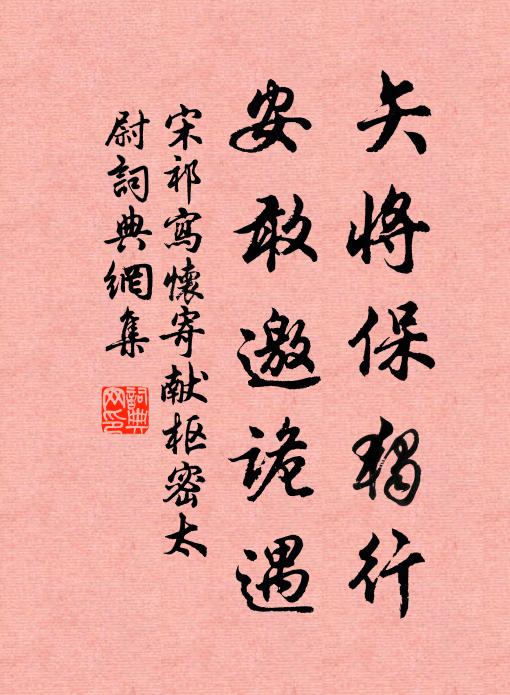 矢將保獨行
安敢邀詭遇
宋祁寫懷寄献枢密太
尉詞典網集
詞典
网印